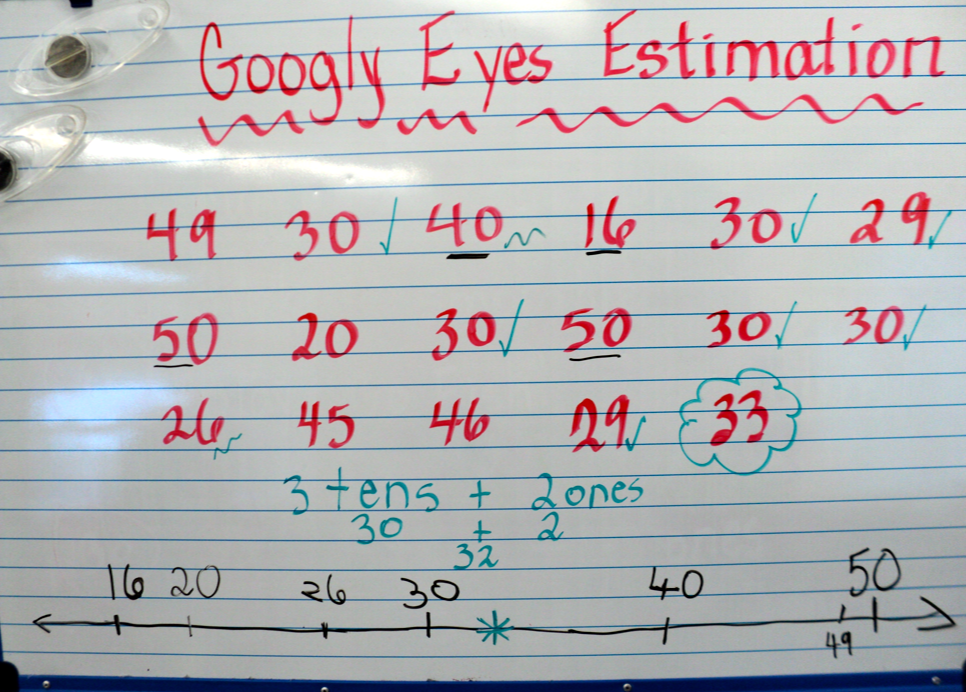 Googly Eyes Estimation
49 30 ✓ 40 ~ 16 30 ✓ 29 ✓
50 20 30 ✓ 50 30 ✓ 30 ✓
26 ~ 45 46 29 ✓ 33
3 tens + 2 ones
30 + 2
32
16 20 26 30 40 50
49